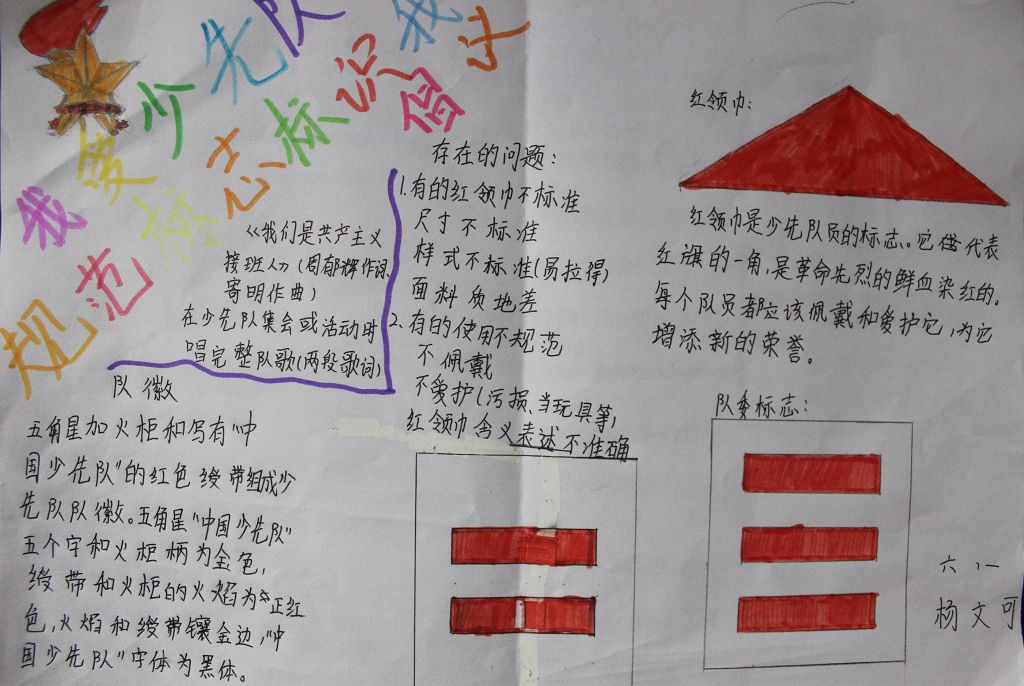 我爱少先队
规范标志标识我
倡
《我们是共产主义
接班人》(周郁辉作词
寄明作曲)
在少先队集会或活动时
唱完整队歌(两段歌词)
队徽
五角星加火柜和写有“中
国少先队”的红色绶带组成少
先队队徽。五角星“中国少先队”
五个字和火柜柄为金色,
绶带和火柜的火焰为正红
色,火焰和绶带镶金边,“中
国少先队”字体为黑体。
存在的问题:
1.有的红领巾不标准
尺寸不标准
样式不标准(易拉得)
面料质地差
2.有的使用不规范
不佩戴
不爱护(污损、当玩具等)
红领巾含义表述不准确
红领巾:
红领巾是少先队员的标志。它代表
红旗的一角,是革命先烈的鲜血染红的。
每个队员都应该佩戴和爱护它,为它
增添新的荣誉。
队委标志:
六
杨文可